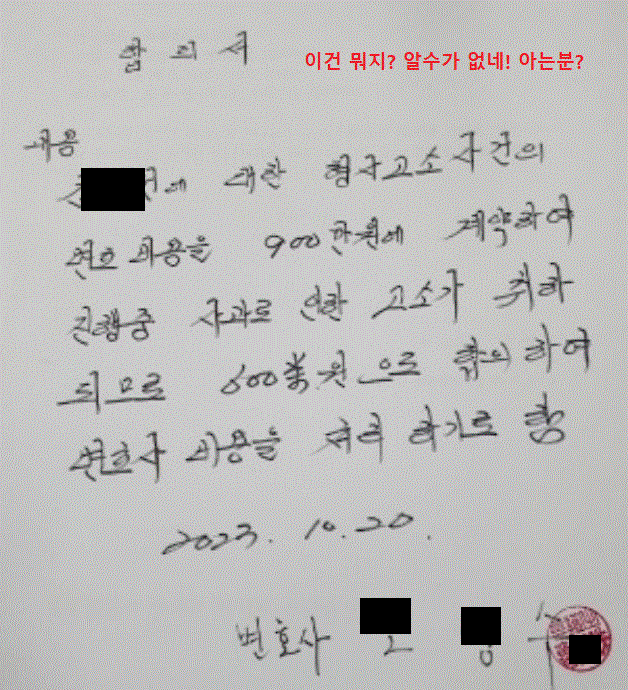 합의서
이건 뭐지? 알수가 없네! 아는분?
내용
에 대한 형사고소 사건의
변호비용을 900만원에 계약하여
진행중 사과로 인한 고소가 취하
되므로 600萬원으로 합의하여
변호사 비용을 처리하기로 함
2023. 10. 20.
변호사